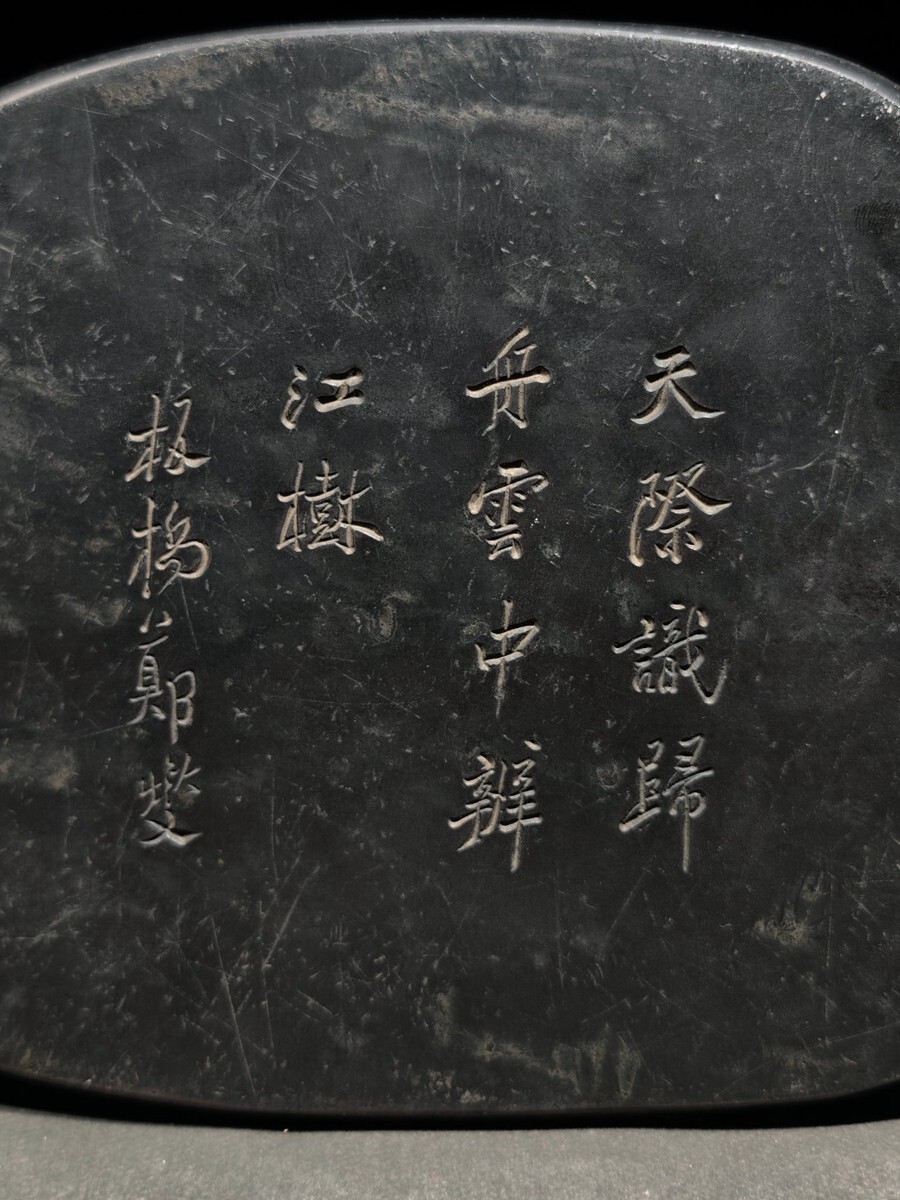 天際識歸
舟雲中辨
江樹
板橋鄭燮